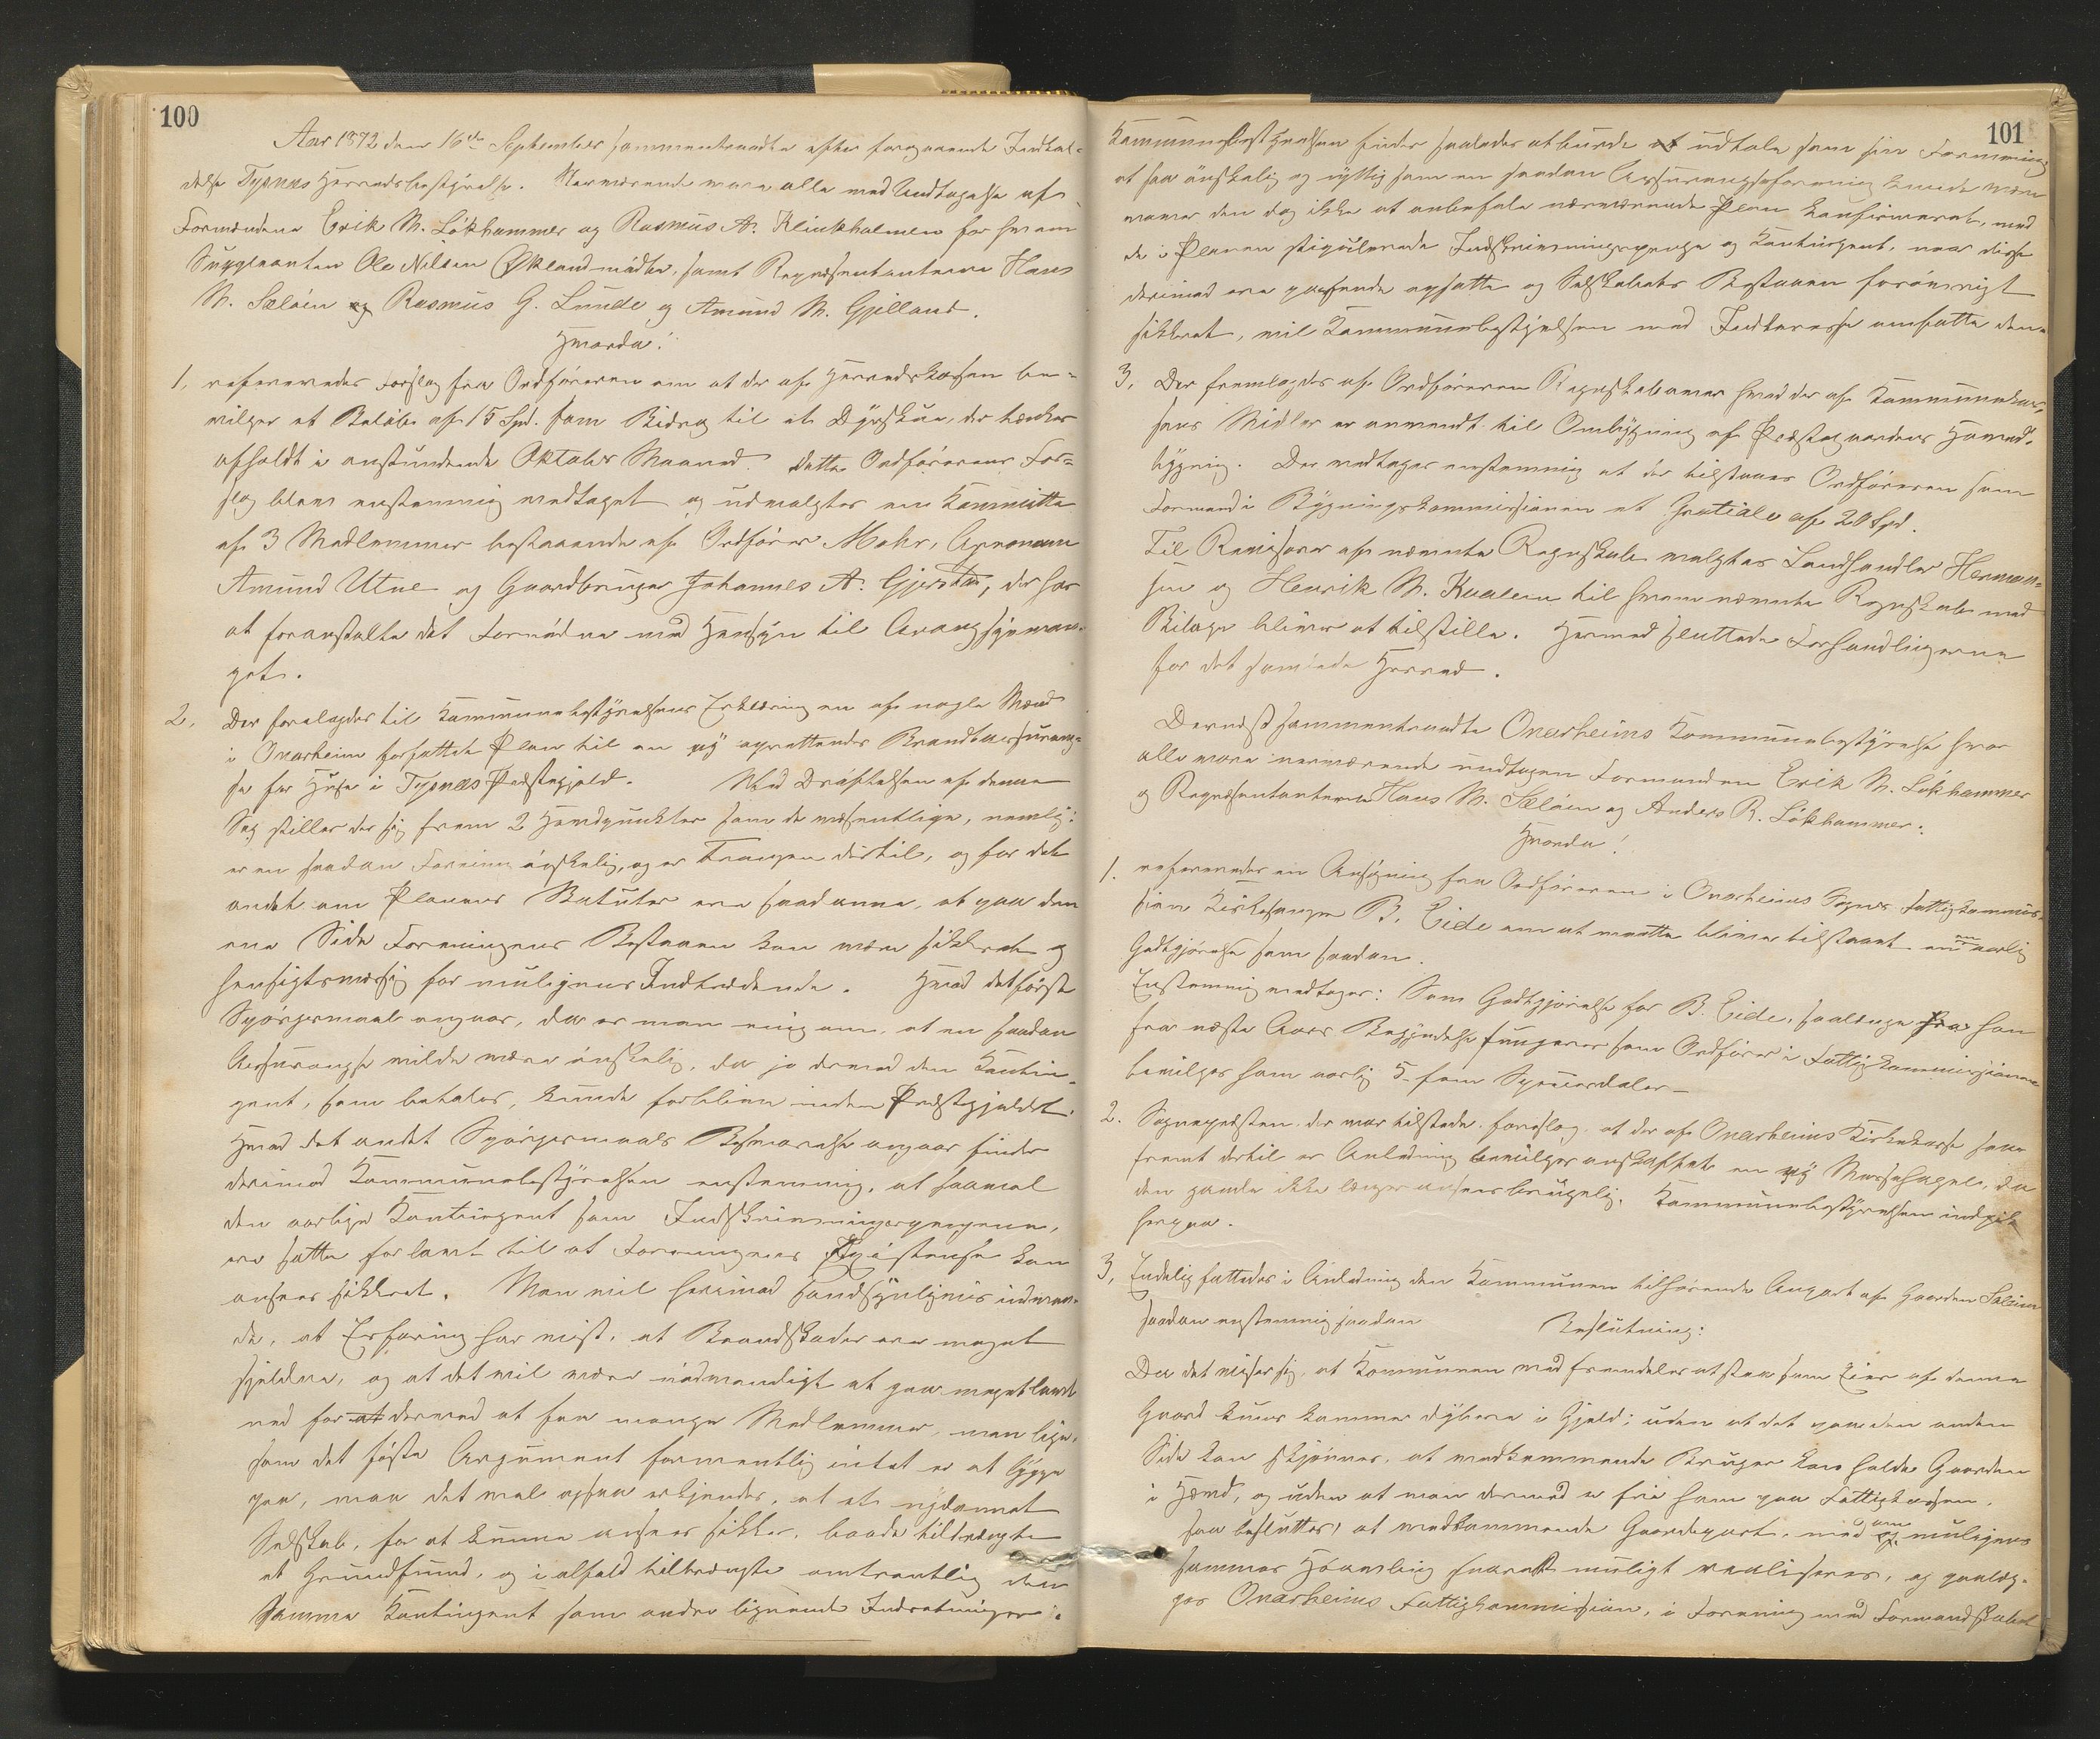 100
Aar 1872 den 16de September sammentraadte efter foregaaende Indkal-
delse Tysnæs Herredsbestyrelse. Nærværende vare alle med Undtagelse af
Formændene Erik M. Lökhammer og Rasmus A. Klinkholmen for hvem
Suppleanten Ole Nilsen Økland mødte, samt Repræsentanterne Hans
M. Sæløen og Rasmus G. Lunde og Amund M. Gjelland.
Hvorda!
1, refereredes Forslag fra Ordføreren om at der af Herredskassen be-
vilges et Beløb af 15 Spd. som Bidrag til et Dyrskue, der tænkes
afholdt i anstundende Oktober Maaned. Dette Ordførerens For-
slag blev enstemmig vedtaget og udvalgtes en Kommitte
af 3 Medlemmer bestaaende af Ordfører Mohr, Agronom
Amund Utne og Gaardbruger Johannes A. Gjerstad, der har
at foranstalte det Fornødne med Hensyn til Arangsjeman-
get.
2, Der forelagdes til Kommunebestyrelsens Erklæring en af nogle Mænd
i Onarheim forfattet Plan til en ny oprettendes Brandtassuran-
se for Huse i Tysnæs Præstegjeld. Ved Drøftelsen af denne
Sag stiller der sig frem 2 Hovedpunkter som de væsentlige, nemlig:
er en saadan Forening ønskelig, og er Trangen dertil, og for det
andet om Planens Statuter ere saadanne, at paa den
ene Side Foreningens Bestaaen kan være sikkret og
hensigtsmæssig for muligens Indtrædende. Hvad det første
Spørgsmaal angaar, da er man enig om, at en saadan
Assurangse vilde være ønskelig, da jo derved den Kontin-
gent, som betales, kunde forblive inden Præstegjeldet.
Hvad det andet Spørgsmaals Besvarelse angaar finder
derimod Kommunebestyrelsen enstemmig, at saavel
den aarlige Kontingent som Indskrivningspengene,
ere satte for lavt til at Foreningens Existense kan
ansees sikkret. Man vil herimod sandsynligvis indven-
de, at Erfaring har vist, at Brandskader ere meget
sjeldne, og at det vil være nødvendigt at gaa meget lavt
ned for at derved at faa mange Medlemmer, men lige-
som det første Argument formentlig intet er at bygge
paa, maa det vel ogsaa erkjendes, at et nydannet
Selskab, for at kunne ansees sikker, baade tiltrængte
et Grundfund, og i alfald tiltrængte omtrentlig den
samme Kontingent som andre lignende Indretninger.
101
Kommunebestyrelsen finder saaledes at burde at udtale som sin Formening
at saa ønskelig og nyttig som en saadan Assurangseforening kunde være
vover den dog ikke at anbefale nærværende Plan konfirmeret, med
de i Planen stipulerede Indskrivningspenge og Kontingent, naar disse
derimod ere passende ansatte og Selskabets Bestaaen forøvrigt
sikkret, vil Kommunebestyrelsen med Interesse omfatte den.
3, Der fremlagdes af Ordføreren Regnskab over hvad der af Kommunekas-
sens Midler er anvendt til Ombygning af Præstegaardens Hoved-
bygning. Der vedtages enstemmig at der tilstaaes Ordføreren som
Formand i Bygningskommissionen et Gratiale af 20 Spd.
Til Revisorer af nævnte Regnskab valgtes Landhandler Herman-
sen og Henrik M. Kaalen til hvem nævnte Regnskab med
Bilage bliver at tilstille. Hermed sluttede Forhandlingerne
for det samlede Herred.
Dernæst sammentraadte Onarheims Kommunebestyrelse hvor
alle vare nærværende undtagen Formanden Erik M. Lökhammer
og Repræsentanterne Hans M. Sæløen og Anders R. Lökhammer.
Hvorda!
1. refereredes en Ansøgning fra Ordføreren i Onarheims Sogns Fattigkommis-
sion Kirkesanger B. Eide om at maatte blive tilstaaet en aarlig
Godtgjørelse som saadan.
Enstemmig vedtages: Som Godtgjørelse for B. Eide, saalænge fra han
fra næste Aars Begyndelse fungerer som Ordfører i Fattigkommissionen
bevilges ham aarlig 5 fem Speciedaler –
2. Sognepresten, der var tilstede, foreslog at der af Onarheims Kirkekasse saa-
fremt dertil er Anledning bevilges anskaffet en ny Messehagel, da
den gamle ikke længer ansees brugelig. Kommunebestyrelsen indgik
herpaa.
3, Endelig fattedes i Anledning den Kommunen tilhørende Anpart af Gaarden Sæløen
saadan enstemmig saadan Beslutning:
Da det viser sig, at Kommunen ved fremdeles at staa som Eier af denne
Gaard kuns kommer dybere i Gjeld; uden at det paa den anden
Side kan skjønnes, at vedkommende Bruger kan holde Gaarden
i Hævd, og uden at man derved er fri ham paa Fattigkassen,
saa besluttes, at vedkommende Gaardepart, med om muligens
sammes Høavling snarest muligt realiseres, og paalæg-
ges Onarheims Fattigkommission, i Forening med Formandskabet